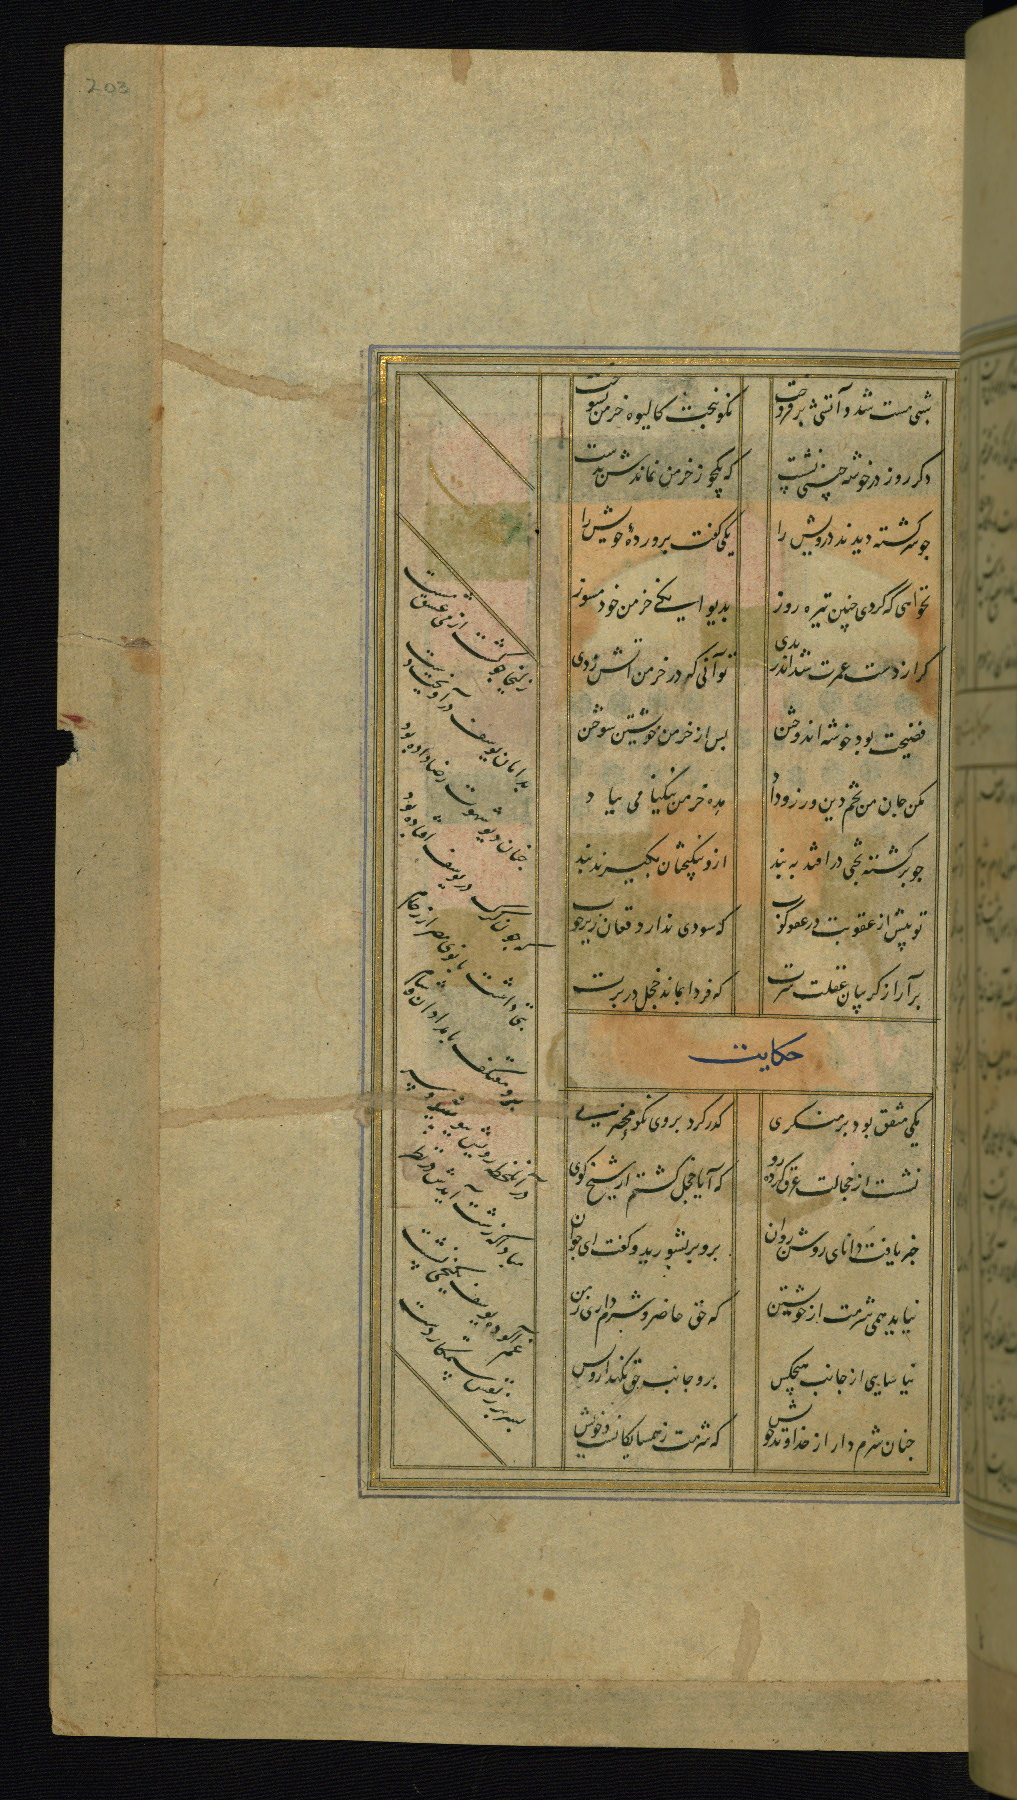 203
شبی مست شد و آتشی برفروخت نگونبخت کالیوه خرمن بسوخت
دکر روز در خوشه چینی نشست که یکجو ز خرمن نماندش بدست
چو سرکشته دیدند درویش را یکی کفت پرورده خویش را
نخواهی که کردی چنین تیره روز بدیوانکی خرمن خود مسوز
کر از دست عمرت شد اندر بدی تو آنی که در خرمن آتش زدی
فضیحت بود خوشه اندوختن پس از خرمن خویشتن سوختن
مکن جان من تخم دین ورز و داد مده خرمن نیکنامی بباد
چو برکشته بختی در افتد به بند ازو نیکبختان بکیرند پند
تو پیش از عقوبت در عفو کوب که سودی ندارد فغان زیر چوب
برآر از کریبان غفلت سرت که فردا بماند خجل در برت
حکایت
یکی متفق بود بر منکری کذر کرد بروی نکو محضری
نشست از خجالت عرق کرده رو که آیا خجل کشتم از شیخ کوی
خبر یافت دانای روشن روان برو بر بشورید و کفت ای جوان
نیاید همی شرمت از خویشتن که حق حاضر و شرم داری ز من
نیاسایی از جانب هیچکس برو جانب حق نکه دار و بس
چنان شرم دار از خداوند خویش که شرمت ز همسایکانست و خویش
زلیخا چو کشت از می عشق مست
بدامان یوسف در آویخت دست
چنان دیو شهوت رضا داده بود
که چون کرک در یوسف افتاده بود
بتی داشت بانوی مصر از رخام
برو معتکف بامدادان و شام
در آن لحظه رویش بپوشید و سر
مبادا که زشت آیدش در نظر
غم آلوده یوسف بکنجی نشست
بسر بر ز نفس ستمکار دست